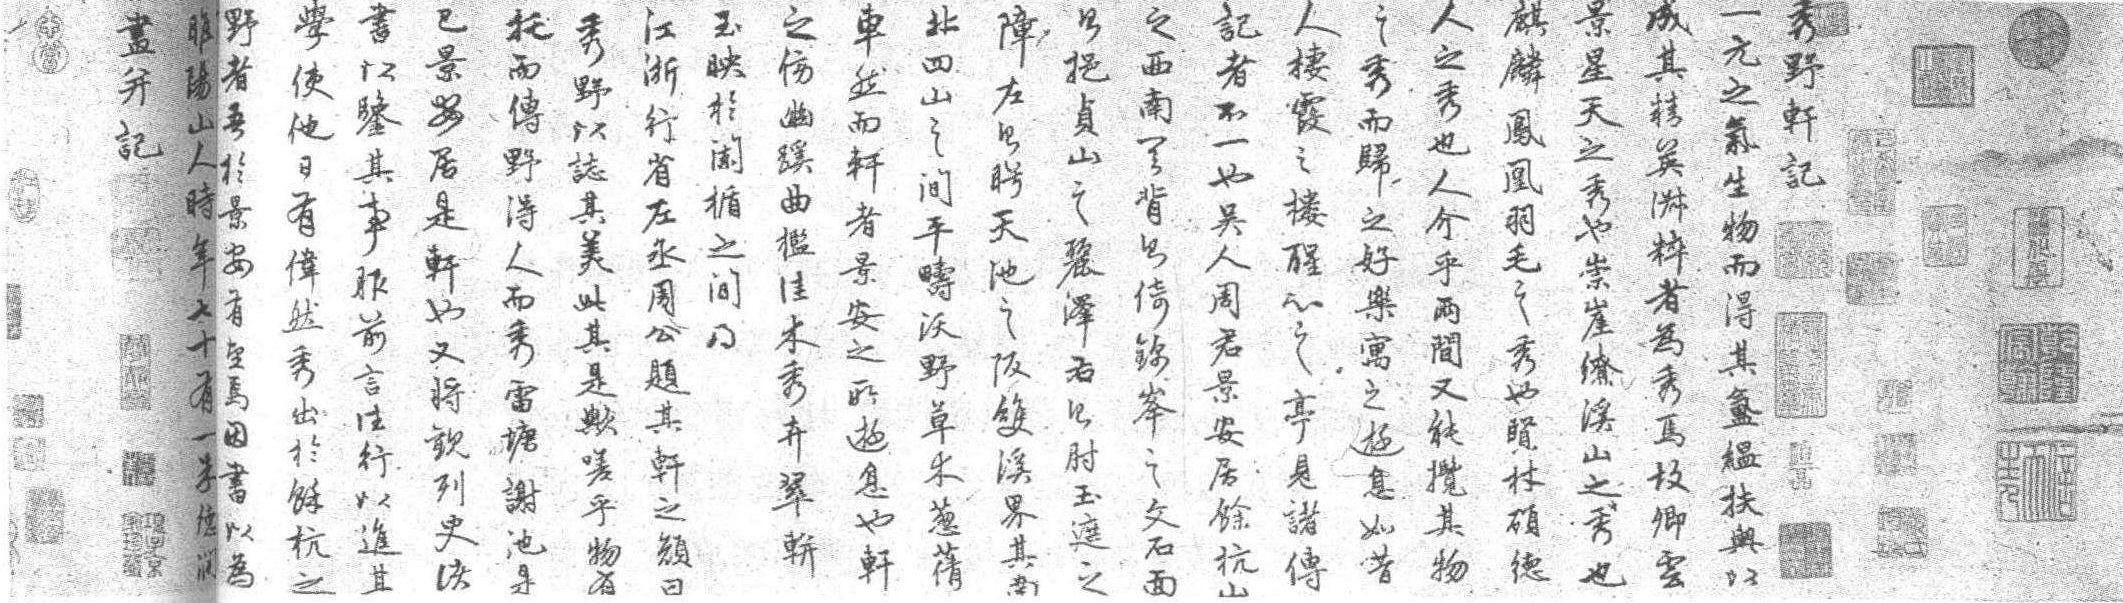 秀野軒記
一元之氣生物而得其盤縕扶輿以
成其精英淋粹者為秀焉故卿雲
景星天之秀也崇崖繚溪山之秀也
麒麟鳳凰羽毛之秀也賢材碩德
人之秀也人介乎兩間又能攬其物
之秀而歸之好樂寓之遊息如昔
人棲霞之樓醒心之亭見諸傳
記者不一也吳人周君景安居餘杭山
之西南其背則倚錦峯之文石面
則挹貞山之麗澤右則肘玉遮之
障左則盻天池之阪雙溪界其南
北四山之間平疇沃野草木葱蒨
車然而軒者景安之所遊息也軒
之傍幽蹊曲檻佳木秀卉翠軿
玉映於闌楯之間乃
江浙行省左丞周公題其軒之顏曰
秀野以誌其美此其是歟嗟乎物有
托而傳野得人而秀雷塘謝池是
已景安居是軒也又將觀列史法
書以鑒其事服前言往行以進其
學使他日有偉然秀出於餘杭之
野者吾於景安有望焉因書以為
睢陽山人時年七十有一朱德潤
畫并記